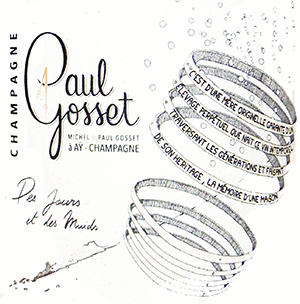 CHAMPAGNE
Paul
Gosset
MICHEL & PAUL GOSSET
à AŸ - CHAMPAGNE
Des Jours
et des Nuits
C'EST D'UNE MÈRE ORIGINELLE GARANTE D'UN
ÉLEVAGE PERPÉTUEL QUE NAÎT CE VIN INTEMPOREL
TRAVERSANT LES GÉNÉRATIONS ET FAISANT
DE SON HERITAGE, LA MÉMOIRE D'UNE MAISON